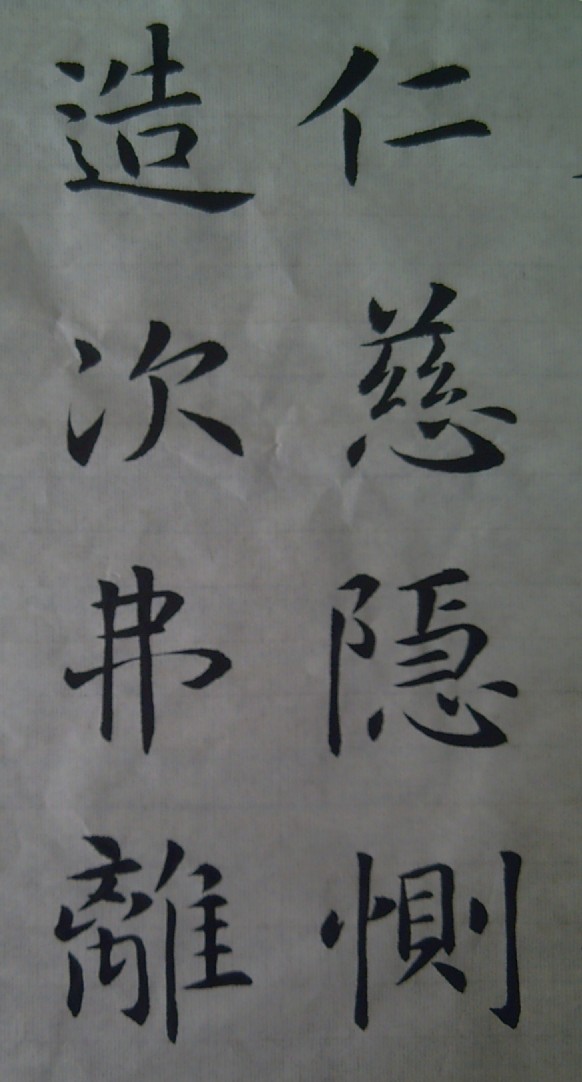 仁慈隱惻
造次弗離